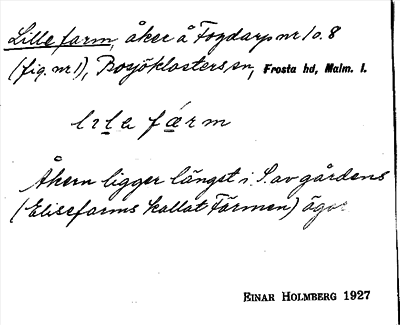 Lille farm, åker å Fogdarp nr 10.8
(fig. nr 1), Bosjöklosters sn, Frosta hd, Malm. l.
lıla färm
Åkern ligger längst i S. av gårdens
(Elisefarms kallat Färmen) ägor
EINAR HOLMBERG 1927